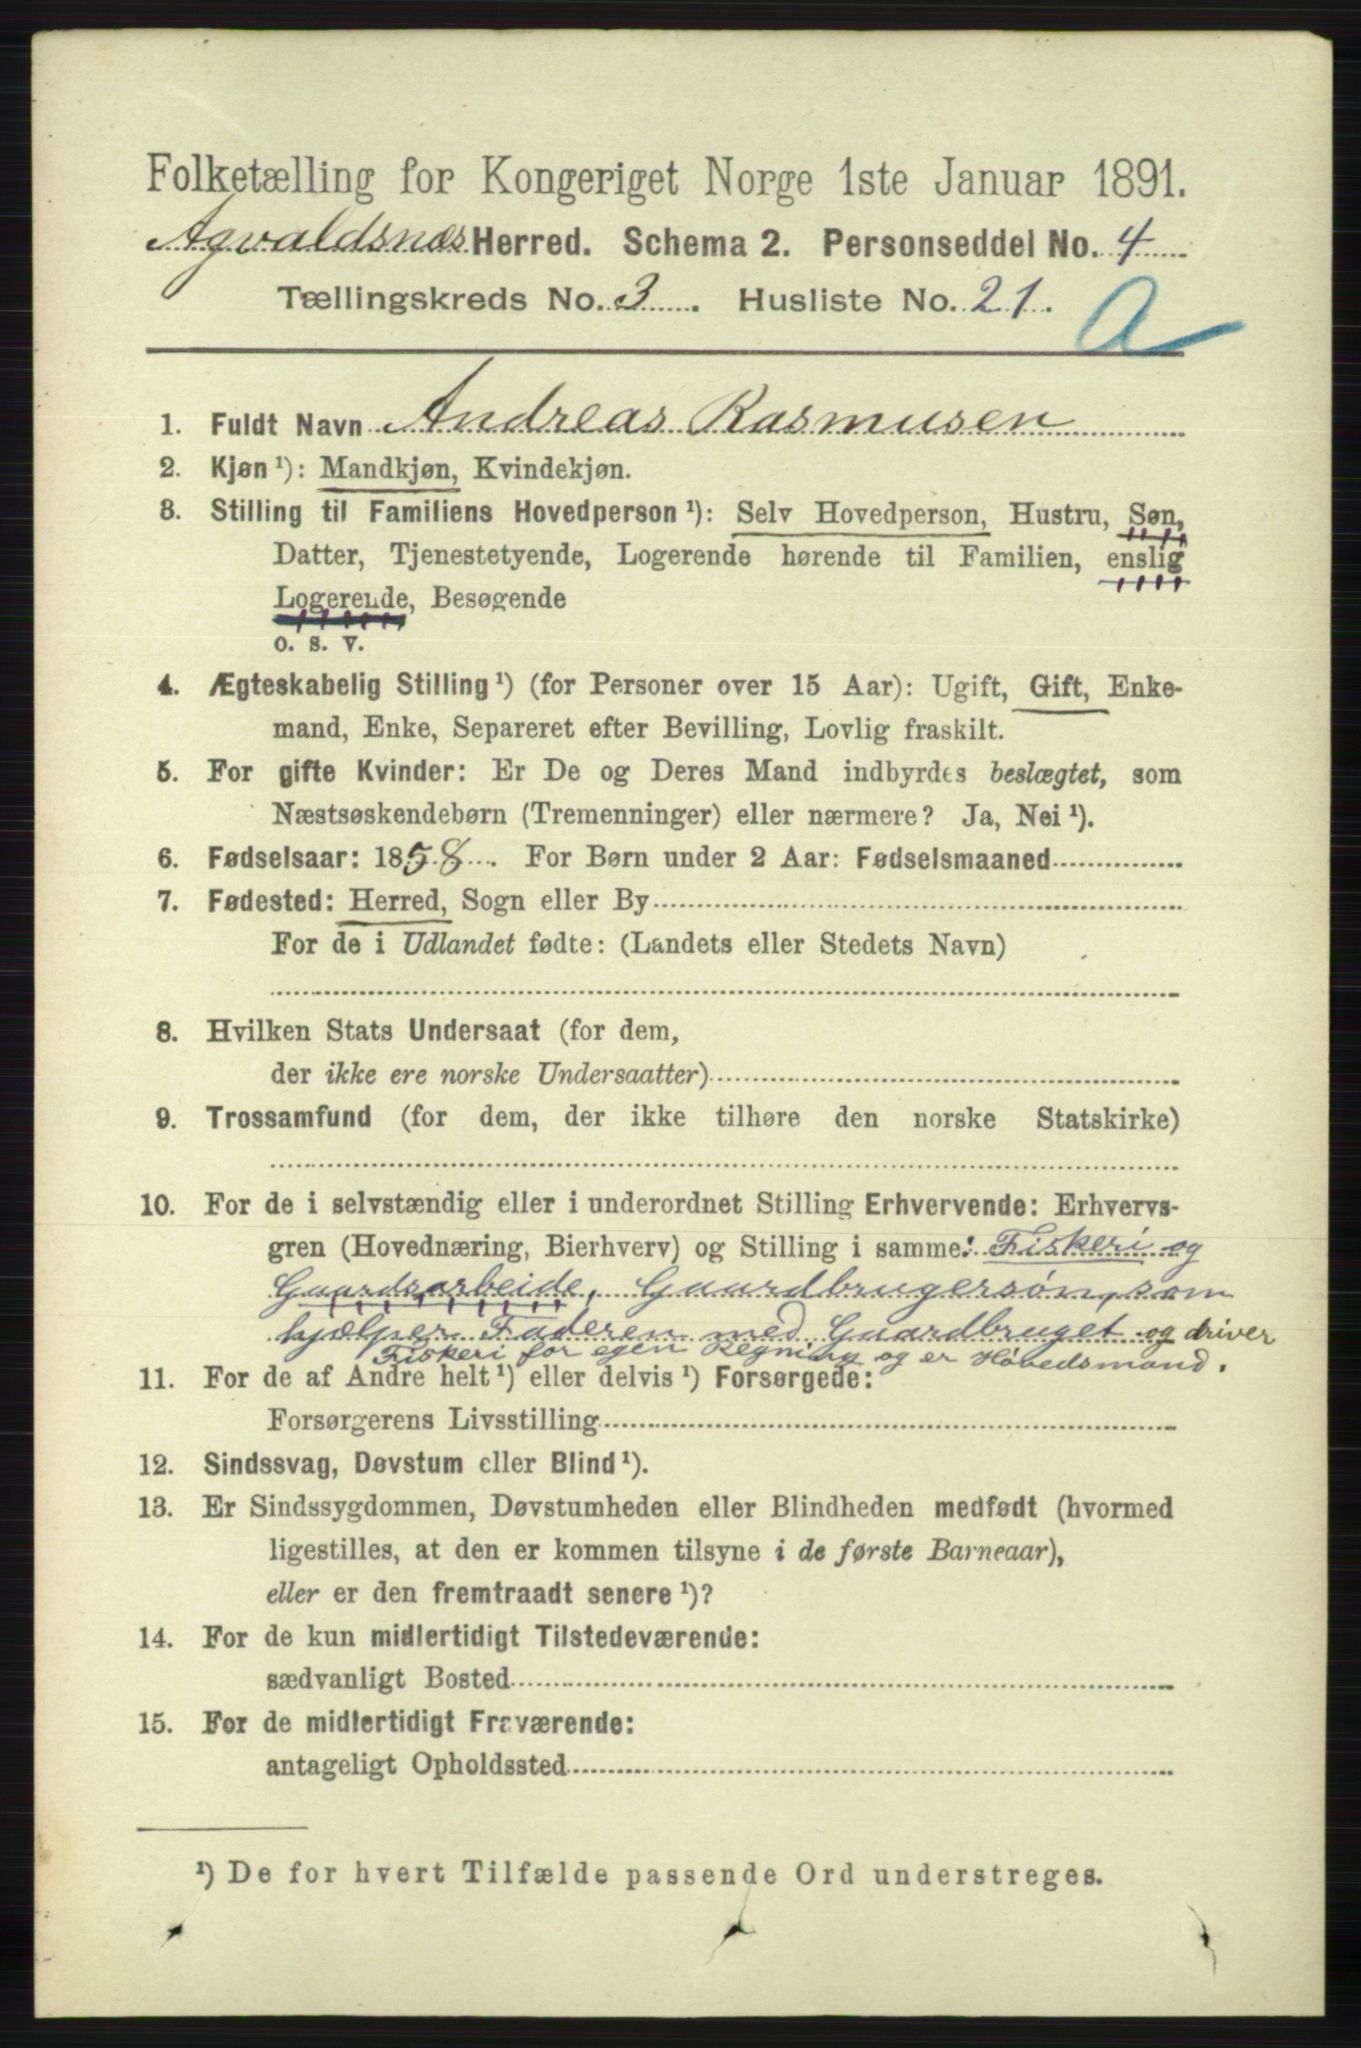 Folketælling for Kongeriget Norge 1ste Januar 1891.
Agvaldsnæs Herred. Schema 2. Personseddel No. 4
Tællingskreds No. 3. Husliste No. 21.
A
1. Fuldt Navn Andreas Rasmusen
2. Kjøn ¹): Mandkjøn, Kvindekjøn.
3. Stilling til Familiens Hovedperson ¹): Selv Hovedperson, Hustru, Søn,
Datter, Tjenestetyende, Logerende hørende til Familien, enslig
Logerende, Besøgende
o. s. v.
4. Ægteskabelig Stilling ¹) (for Personer over 15 Aar): Ugift, Gift, Enke-
mand, Enke, Separeret efter Bevilling, Lovlig fraskilt.
5. For gifte Kvinder: Er De og Deres Mand indbyrdes beslægtet, som
Næstsøskendebørn (Tremenninger) eller nærmere? Ja, Nei ¹).
6. Fødselsaar: 1858. For Børn under 2 Aar: Fødselsmaaned
7. Fødested: Herred, Sogn eller By
For de i Udlandet fødte: (Landets eller Stedets Navn)
8. Hvilken Stats Undersaat (for dem,
der ikke ere norske Undersaatter)
9. Trossamfund (for dem, der ikke tilhøre den norske Statskirke)
10. For de i selvstændig eller i underordnet Stilling Erhvervende: Erhvervs-
gren (Hovednæring, Bierhverv) og Stilling i samme: Fiskeri og
Gaardsarbeide, Gaardbrugersøn, som
hjælper Faderen med Gaardbruget og driver
Fiskeri for egen Regning og er Høvedsmand.
11. For de af Andre helt ¹) eller delvis ¹) Forsørgede:
Forsørgerens Livsstilling
12. Sindssvag, Døvstum eller Blind ¹).
13. Er Sindssygdommen, Døvstumheden eller Blindheden medfødt (hvormed
ligestilles, at den er kommen tilsyne i de første Barneaar),
eller er den fremtraadt senere ¹)?
14. For de kun midlertidigt Tilstedeværende:
sædvanligt Bosted
15. For de midlertidigt Fraværende:
antageligt Opholdssted
¹) De for hvert Tilfælde passende Ord understreges.